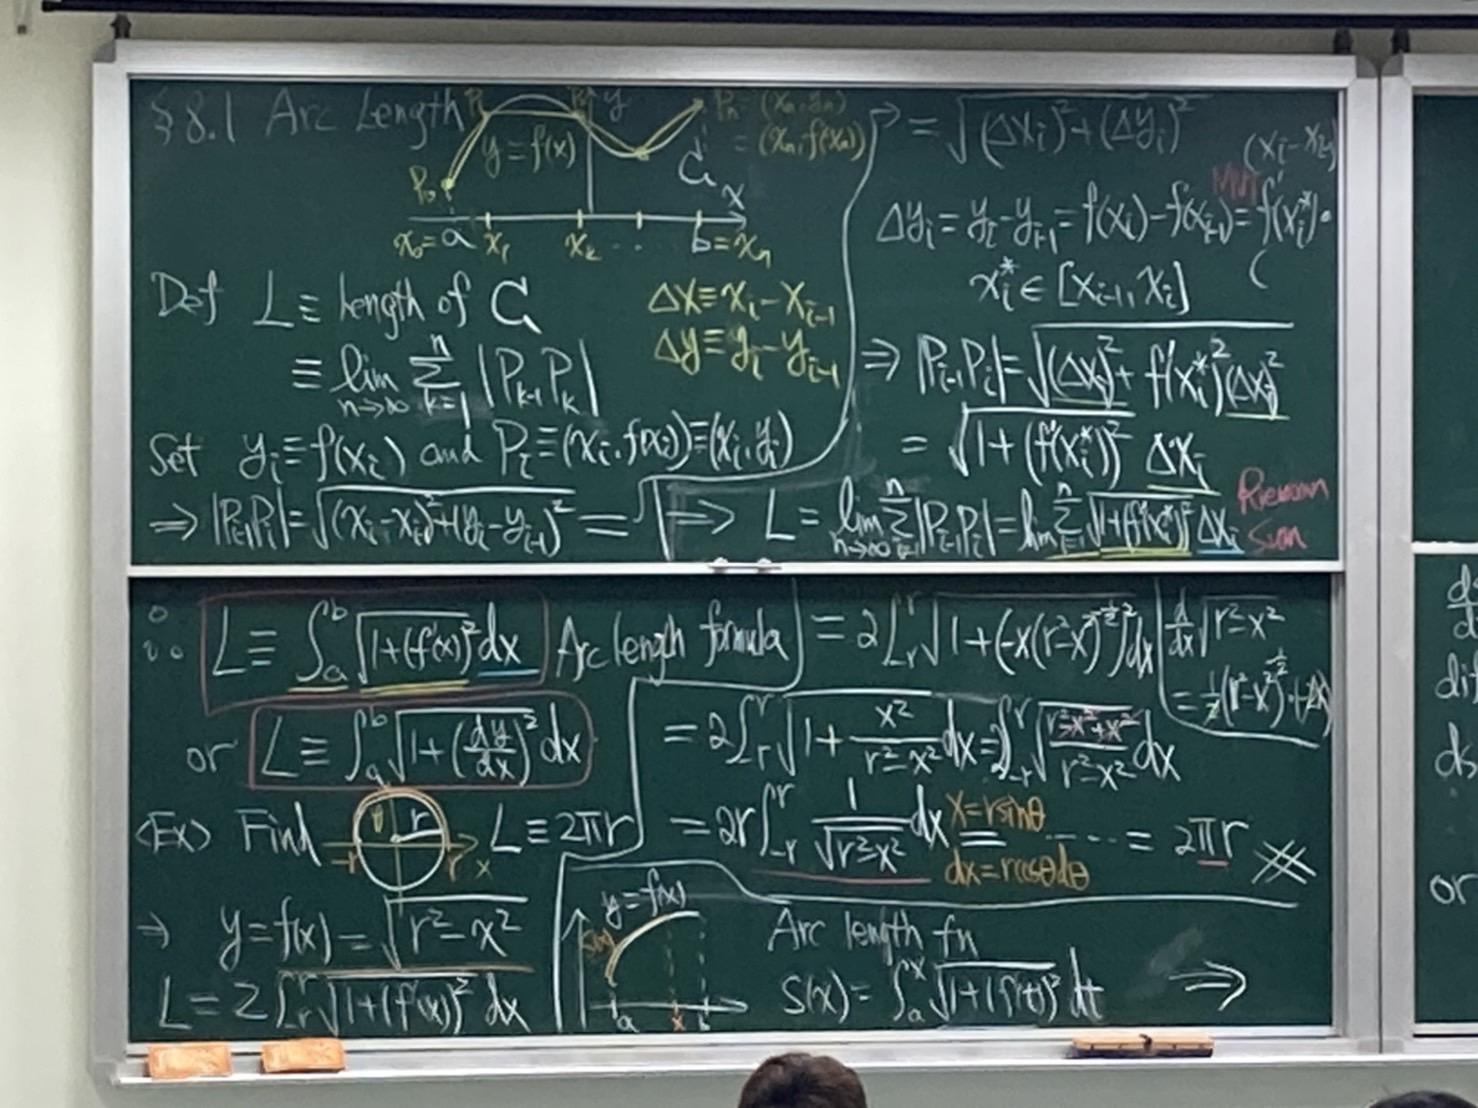 §8.1 Arc Length
P₀ P₁ Pₖ y Pₙ = (xₙ, yₙ)
y = f(x) = (xₙ, f(xₙ))
C x
x₀ = a x₁ xₖ ... b = xₙ
Def L ≡ length of C
≡ lim_{n→∞} Σ_{k=1}^{n} |P_{k-1} P_k|
Δx ≡ x_i - x_{i-1}
Δy ≡ y_i - y_{i-1}
Set y_i ≡ f(x_i) and P_i ≡ (x_i, f(x_i)) ≡ (x_i, y_i)
⇒ |P_{i-1}P_i| = √((x_i - x_{i-1})² + (y_i - y_{i-1})²) =
= √((Δx_i)² + (Δy_i)²)
MVT
Δy_i = y_i - y_{i-1} = f(x_i) - f(x_{i-1}) = f'(x_i*)·
x_i* ∈ [x_{i-1}, x_i]
⇒ |P_{i-1}P_i| = √((Δx_i)² + f'(x_i*)²(Δx_i)²)
= √(1 + (f'(x_i*))²) Δx_i
⇒ L = lim_{n→∞} Σ_{i=1}^{n} |P_{i-1}P_i| = lim Σ_{i=1}^{n} √(1 + f'(x_i*)²) Δx_i
Riemann
Sum
∴ L ≡ ∫_a^b √(1 + (f'(x))²) dx Arc length formula
or L ≡ ∫_a^b √(1 + (dy/dx)²) dx
<Ex> Find r -r r x L ≡ 2πr
⇒ y = f(x) = √(r² - x²)
L = 2∫_{-r}^{r} √(1 + (f'(x))²) dx
= 2∫_{-r}^{r} √(1 + (-x(r²-x²)^{-1/2})²) dx
d/dx √(r² - x²)
= ½(r² - x²)^{-1/2}·(-2x)
= 2∫_{-r}^{r} √(1 + x²/(r² - x²)) dx = 2∫_{-r}^{r} √((r² - x² + x²)/(r² - x²)) dx
= 2r∫_{-r}^{r} 1/√(r² - x²) dx = ..... = 2πr
x = r sinθ
dx = r cosθ dθ
y = f(x)
S(x)
a x b
Arc length fn
S(x) = ∫_a^x √(1 + (f'(t))²) dt ⇒
or